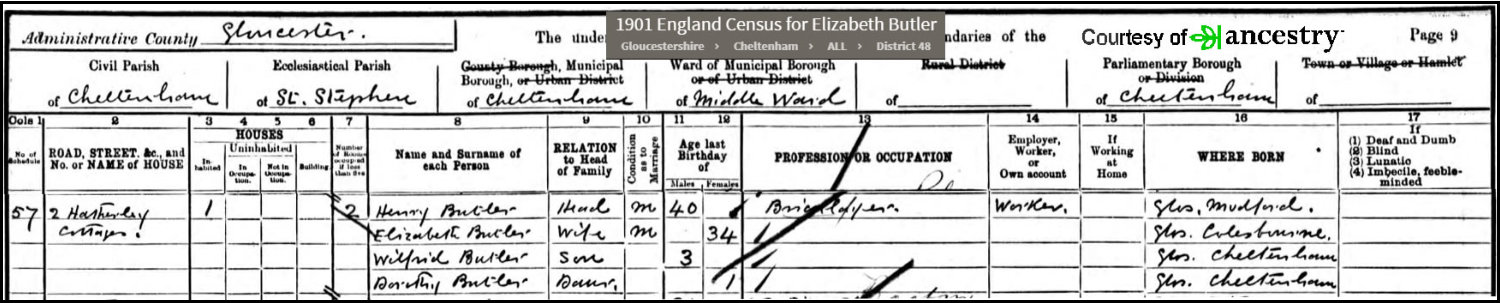 1901 England Census for Elizabeth Butler
Gloucestershire > Cheltenham > ALL > District 48
Courtesy of ancestry
Administrative County Gloucester.
The unde
ndaries of the
Page 9
Civil Parish
of Cheltenham
Ecclesiastical Parish
of St. Stephen
County Borough, Municipal
Borough, or Urban District
of Cheltenham
Ward of Municipal Borough
or of Urban District
of Middle Ward
Rural District
of
Parliamentary Borough
or Division
of Cheltenham
Town or Village or Hamlet
of
Cols 1 2 3 4 5 6 7 8 9 10 11 12 13 14 15 16 17
No. of Schedule
ROAD, STREET, &c., and
No. or NAME of HOUSE
HOUSES
Inhabited
Uninhabited
In Occupation.
Not in Occupation.
Building
Number of Rooms occupied if less than five
Name and Surname of
each Person
RELATION
to Head
of Family
Condition as to Marriage
Age last
Birthday
of
Males Females
PROFESSION OR OCCUPATION
Employer,
Worker,
or
Own account
If
Working
at
Home
WHERE BORN
If
(1) Deaf and Dumb
(2) Blind
(3) Lunatic
(4) Imbecile, feeble-
minded
57 2 Hatherley 1 2 Henry Butler Head M 40 Bricklayer. Worker. Glos.
Cottages. Elizabeth Butler Wife M 34 Glos. Colesbourne.
Wilfrid Butler Son 3 Glos. Cheltenham
Dorothy Butler Daur. 1 Glos. Cheltenham